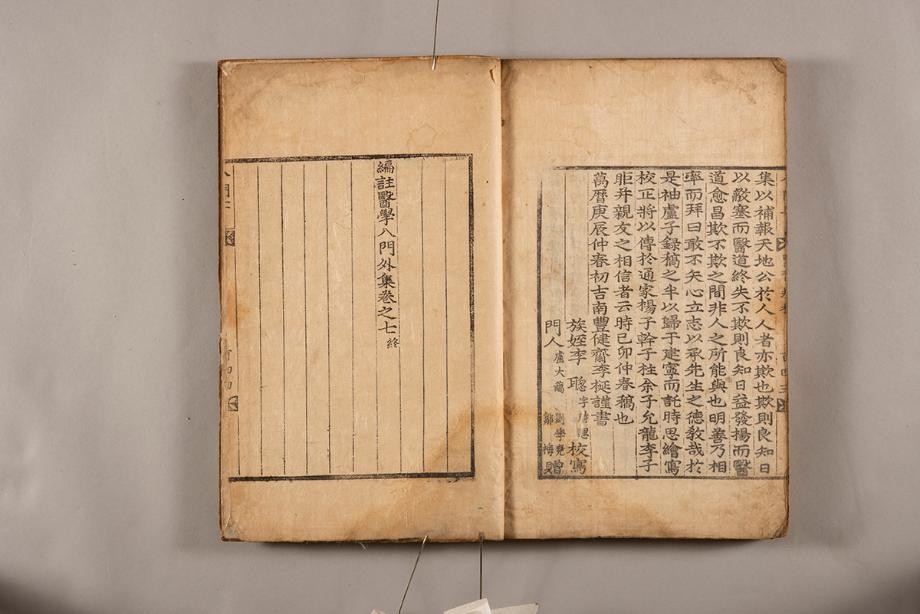 集以補報天地公於人人者亦欺也欺則良知日
以蔽塞而醫道終失不欺則良知日益發揚而醫
道愈昌欺不欺之間非人之所能與也明善乃相
率而拜曰敢不矢心立志以承先生之德教哉於
是袖盧子錄稿之半以歸于建寧而託時思繪寫
校正將以傳於通家楊子幹子柱余子允龍李子
昛升親友之相信者云時己卯仲春稿也
萬曆庚辰仲春初吉南豐健齋李梴謹書
族姪李聰字時思校寫
門人盧大 劉學 鄒
編註醫學入門外集卷之七終